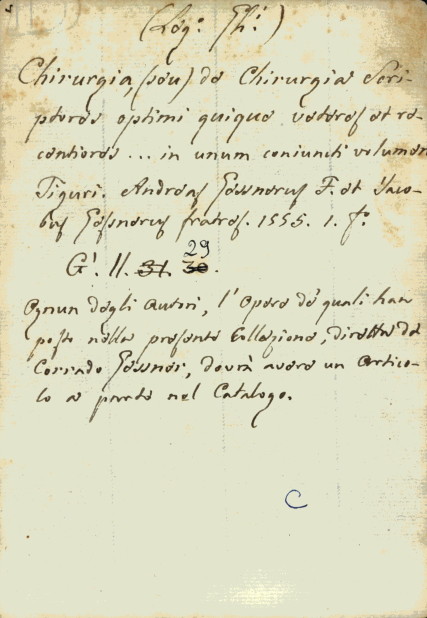 (Leg: Gh:)
Chirurgia, (seu) de Chirurgia Scri-
ptores optimi quique veteres et re-
centiores ... in unum coniuncti volumen
Tiguri. Andreas Gessnerus F. et Jaco-
bus Gessnerus fratres. 1555. 1. f.º
29
G! II. 31. 30.
Ognun degli Autori, l'Opere de' quali han
posto nella presente Collezione, diretta da
Corrado Gessner, dovrà avere un artico-
lo a parte nel Catalogo.
C